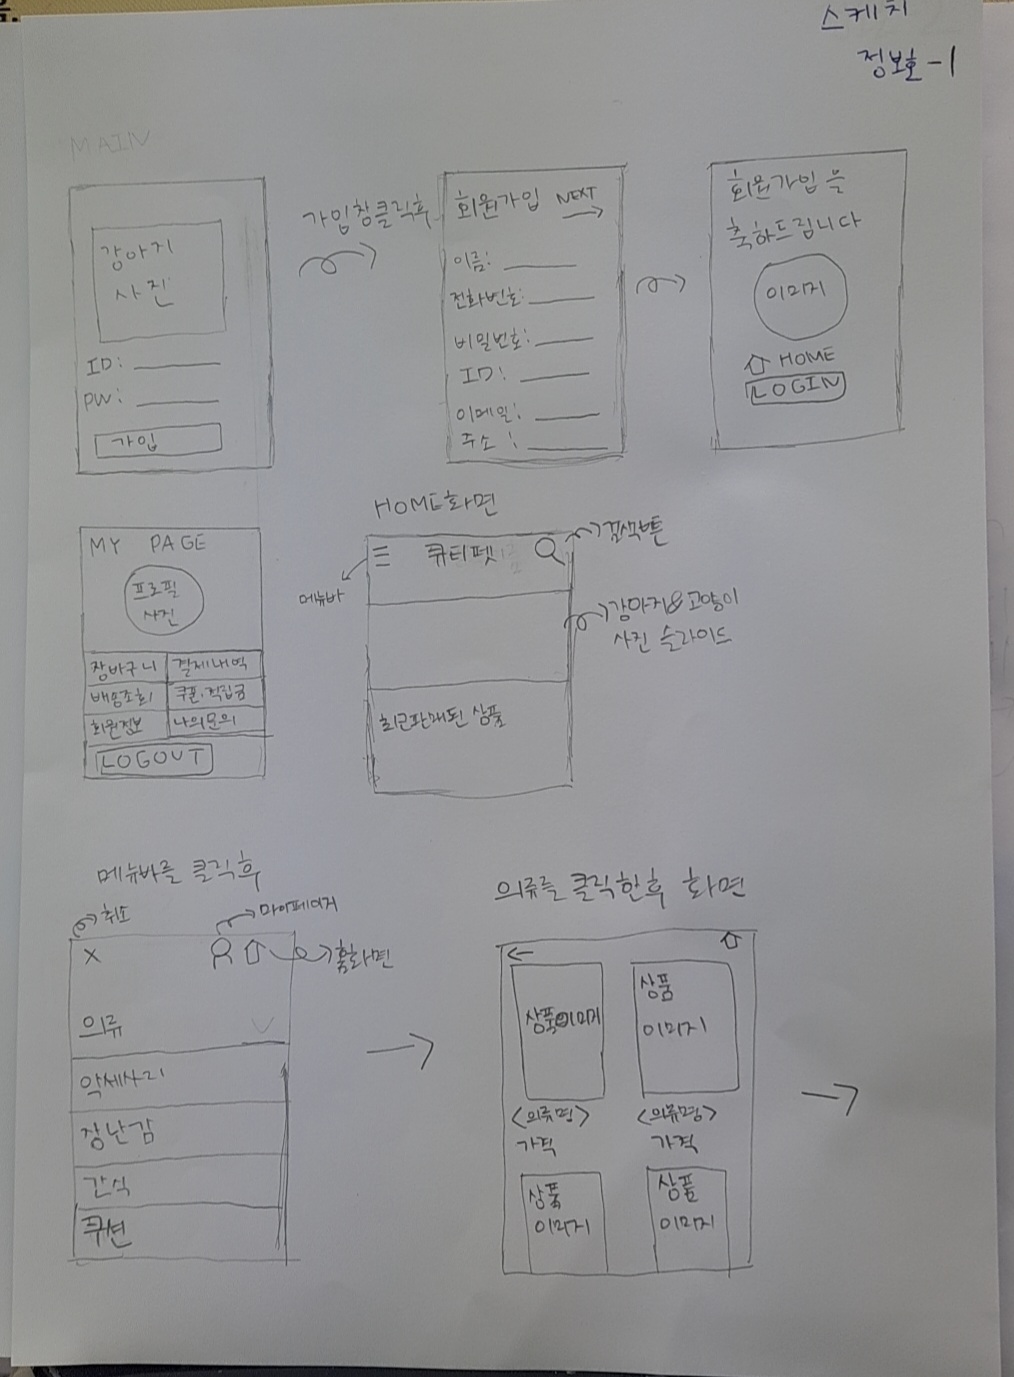 스케치
정보호-1
MAIN
강아지
사진
ID:
PW:
가입
가입창클릭후
회원가입 NEXT
이름:
전화번호:
비밀번호:
ID:
이메일:
주소:
회원가입을
축하드립니다
이미지
HOME
LOGIN
MY PAGE
프로필
사진
장바구니 결제내역
배송조회 쿠폰·적립금
회원정보 나의문의
LOGOUT
HOME화면
큐티펫
메뉴바
검색버튼
강아지&고양이
사진 슬라이드
최근판매된 상품
메뉴바를 클릭후
취소
마이페이지
X
홈화면
의류
악세사리
장난감
간식
쿠션
의류를 클릭한후 화면
상품이미지
상품
이미지
<의류명> <의류명>
가격 가격
상품 상품
이미지 이미지